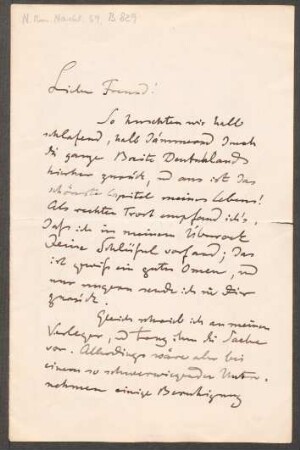 N. Mus. Nachl. 59, B 829
Lieber Freund!
So huschten wir halb
schlafend, halb dämmernd durch
die ganze Breite Deutschlands
hierher zurück, und aus ist das
schönste Capitel meines Lebens!
Als rechten Trost empfand ich's,
daß ich in meinem Überrock
Deine Schlüßel vorfand; das
ist gewiß ein gutes Omen, und
nur ungern sende ich sie Dir
zurück.
Gleich schrieb ich an meinen
Verleger, und trug ihm die Sache
vor. Allerdings wäre aber bei
einem so schwerwiegenden Unter-
nehmen einige Beruhigung